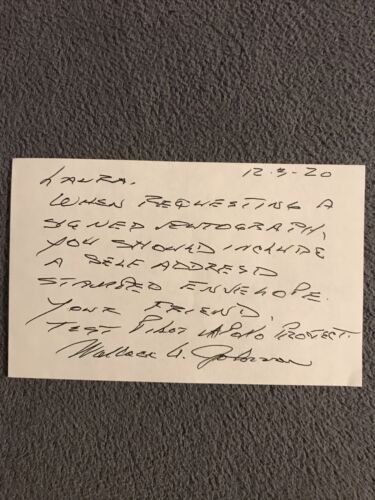 LAURA, 12-3-20
WHEN REQUESTING A
SIGNED AUTOGRAPH,
YOU SHOULD INCLUDE
A SELF ADDRESD
STAMPED ENVELOPE.
YOUR FRIEND,
TEST PILOT APOLLO PROJECT.
Wallace A. Johnson